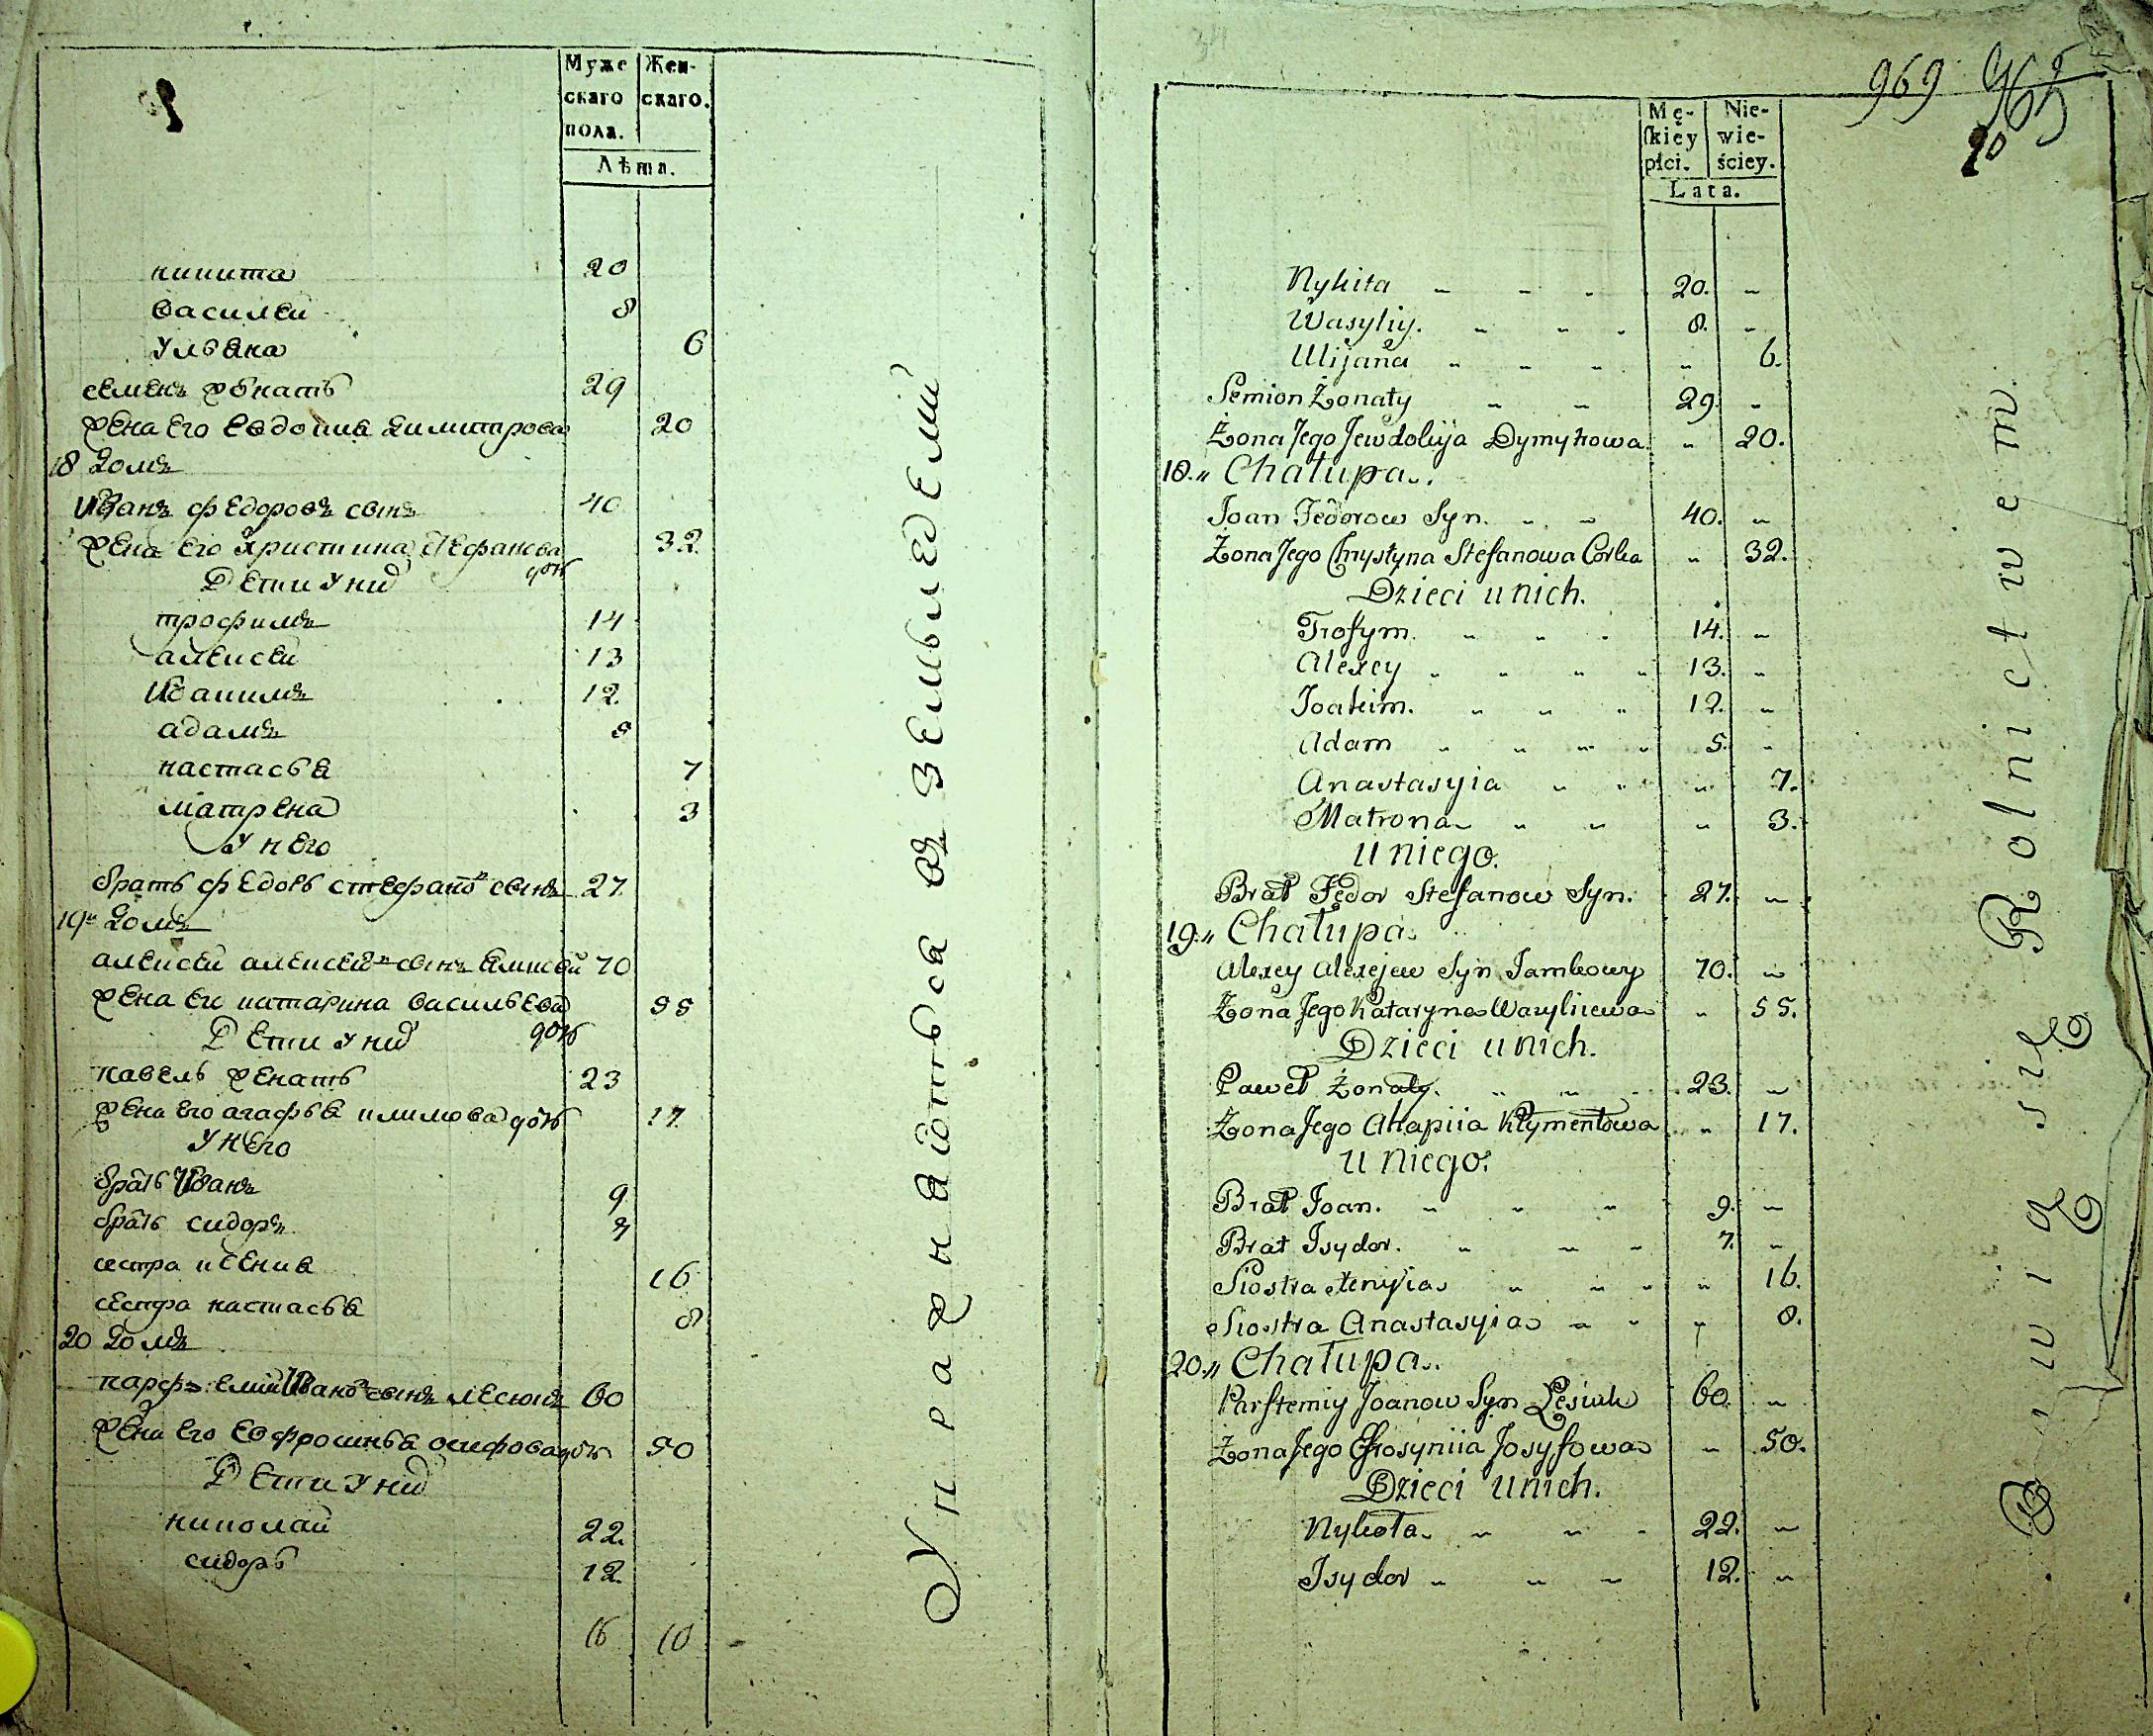 Муже
скаго
пола.
Жен-
скаго.
Лѣта.
никита 20
василей 8
ульяна 6
семенъ женатъ 29
жена его евдокия димитрова 20
18 Домъ
Иванъ федоровъ сынъ 40
жена его христиина стефанова дочь 32.
Дети у них
трофимъ 14
алексей 13
Иоакимъ 12.
адамъ 5
настасья 7
матрена 3
У него
братъ федоръ стефановъ сынъ 27.
19" Домъ
алексей алексеевъ сынъ 70
жена ег катарина васильева дочь 55
Дети у них
павелъ женатъ 23
жена его агафья климова дочь 17.
У него
братъ Иванъ 9
братъ сидоръ 7
сестра ксения 16
сестра настасья 8
20 Домъ
парфемий Ивановъ сынъ лесюкъ 60
жена его евфросинья осифова дочь 50
Дети у них
николай 22.
сидоръ 12.
16 10
Упражняются въ земледелии
969 965
20
Mę-
skiey
płci.
Nie-
wie-
ściey.
Lata.
Nykita „ „ „ 20. „
Wasyliy. „ „ „ 8. „
Ulijana „ „ „ „ 6.
Semion Żonaty „ „ 29. „
Żona Jego Jewdokija Dymytrowa „ 20.
18.„ Chałupa..
Joan Fedorow Syn. „ „ 40. „
Żona Jego Chrystyna Stefanowa Corka „ 32.
Dzieci u nich.
Trofym. „ „ „ 14. „
Alexey „ „ „ „ 13. „
Joakim. „ „ „ 12. „
Adam „ „ „ „ 5. „
Anastasyia „ „ „ 7.
Matrona „ „ „ 3.
U niego.
Brat Fedor Stefanow Syn. 27. „
19.„ Chałupa.
Alexey Alexejew Syn Jamkowy 70. „
Żona Jego Kataryna Wasyliiewa „ 55.
Dzieci u nich.
Paweł Żonaty. „ „ „ 23. „
Żona Jego Ahapiia Kłymentowa „ 17.
U niego.
Brat Joan. „ „ „ 9. „
Brat Isydor. „ „ „ 7. „
Siostra Xenyia „ „ „ „ 16.
Siostra Anastasyia „ „ „ 8.
20.„ Chałupa..
Parftemiy Joanow Syn Lesiuk 60. „
Żona Jego Efrosyniia Josyfowa „ 50.
Dzieci u nich.
Nykoła. „ „ „ 22. „
Isydor „ „ „ 12. „
Bawią się Rolnictwem.